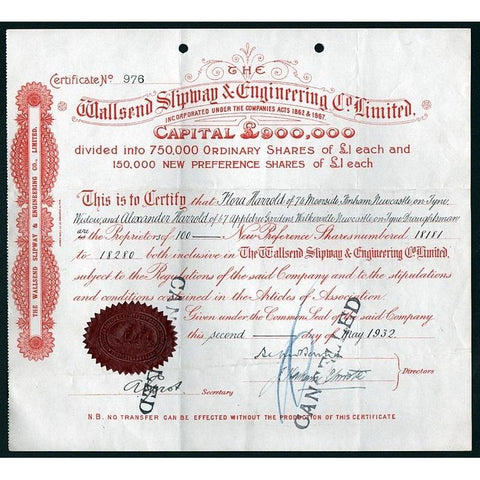 Certificate No 976
THE
Wallsend Slipway & Engineering Co. Limited.
INCORPORATED UNDER THE COMPANIES ACTS 1862 & 1867.
CAPITAL £900,000
divided into 750,000 ORDINARY SHARES of £1 each and
150,000 NEW PREFERENCE SHARES of £1 each
This is to Certify that Flora Harrold of 76 Moorside Fenham Newcastle on Tyne
Widow and Alexander Harrold of 67 Appletree Gardens Walkerville Newcastle on Tyne Draughtsman
are
is the Proprietors of 100 New Preference Shares numbered 18181
to 18280 both inclusive in The Wallsend Slipway & Engineering Co. Limited,
subject to the Regulations of the said Company and to the stipulations
and conditions contained in the Articles of Association.
Given under the Common Seal of the said Company
this second day of May 1932.
Directors
Secretary
N.B. NO TRANSFER CAN BE EFFECTED WITHOUT THE PRODUCTION OF THIS CERTIFICATE
THE WALLSEND SLIPWAY & ENGINEERING CO., LIMITED.
CANCELLED
CANCELLED